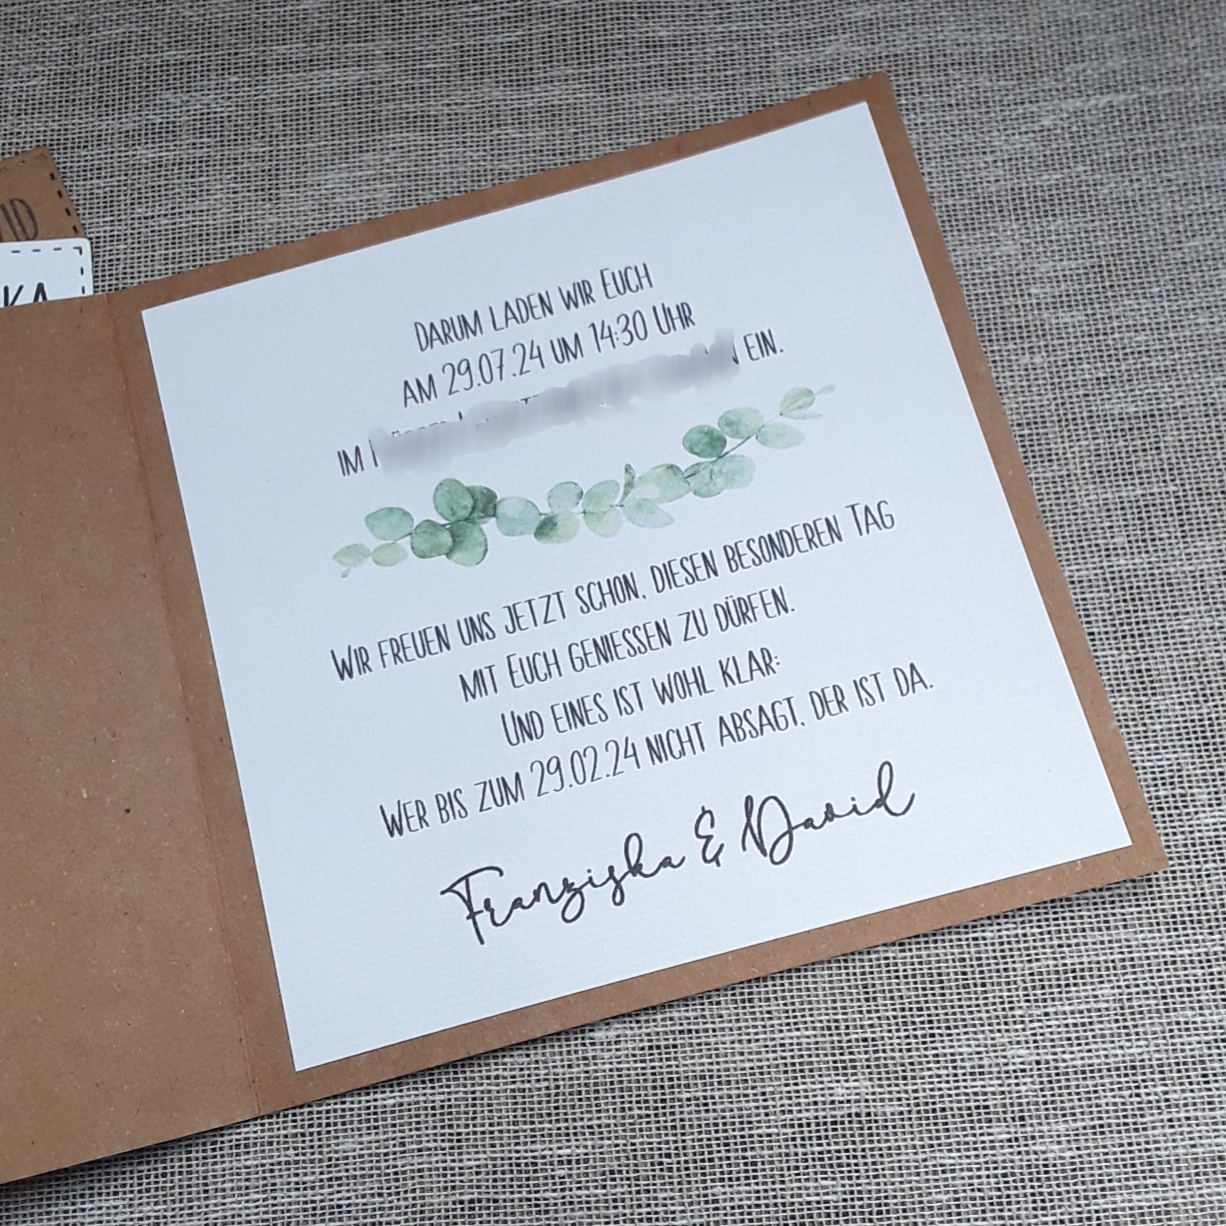 DARUM LADEN WIR EUCH
AM 29.07.24 UM 14:30 UHR
IM EIN.
WIR FREUEN UNS JETZT SCHON, DIESEN BESONDEREN TAG
MIT EUCH GENIESSEN ZU DÜRFEN.
UND EINES IST WOHL KLAR:
WER BIS ZUM 29.02.24 NICHT ABSAGT, DER IST DA.
Franziska & David